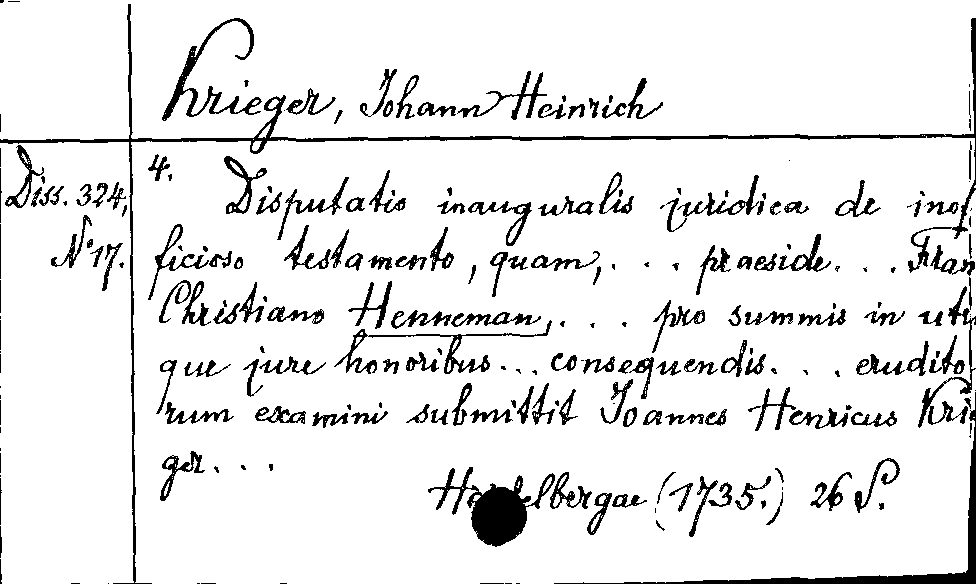 Krieger, Johann Heinrich
Diss. 324, N° 17.
4. Disputatio inauguralis juridica de inof
ficioso testamento, quam, . . . praeside . . . Fran
Christiano Henneman, . . . pro summis in utr
que jure honoribus . . . consequendis . . . erudito
rum examini submittit Joannes Henricus Kri
ger . . .
(1735.) 26 S.